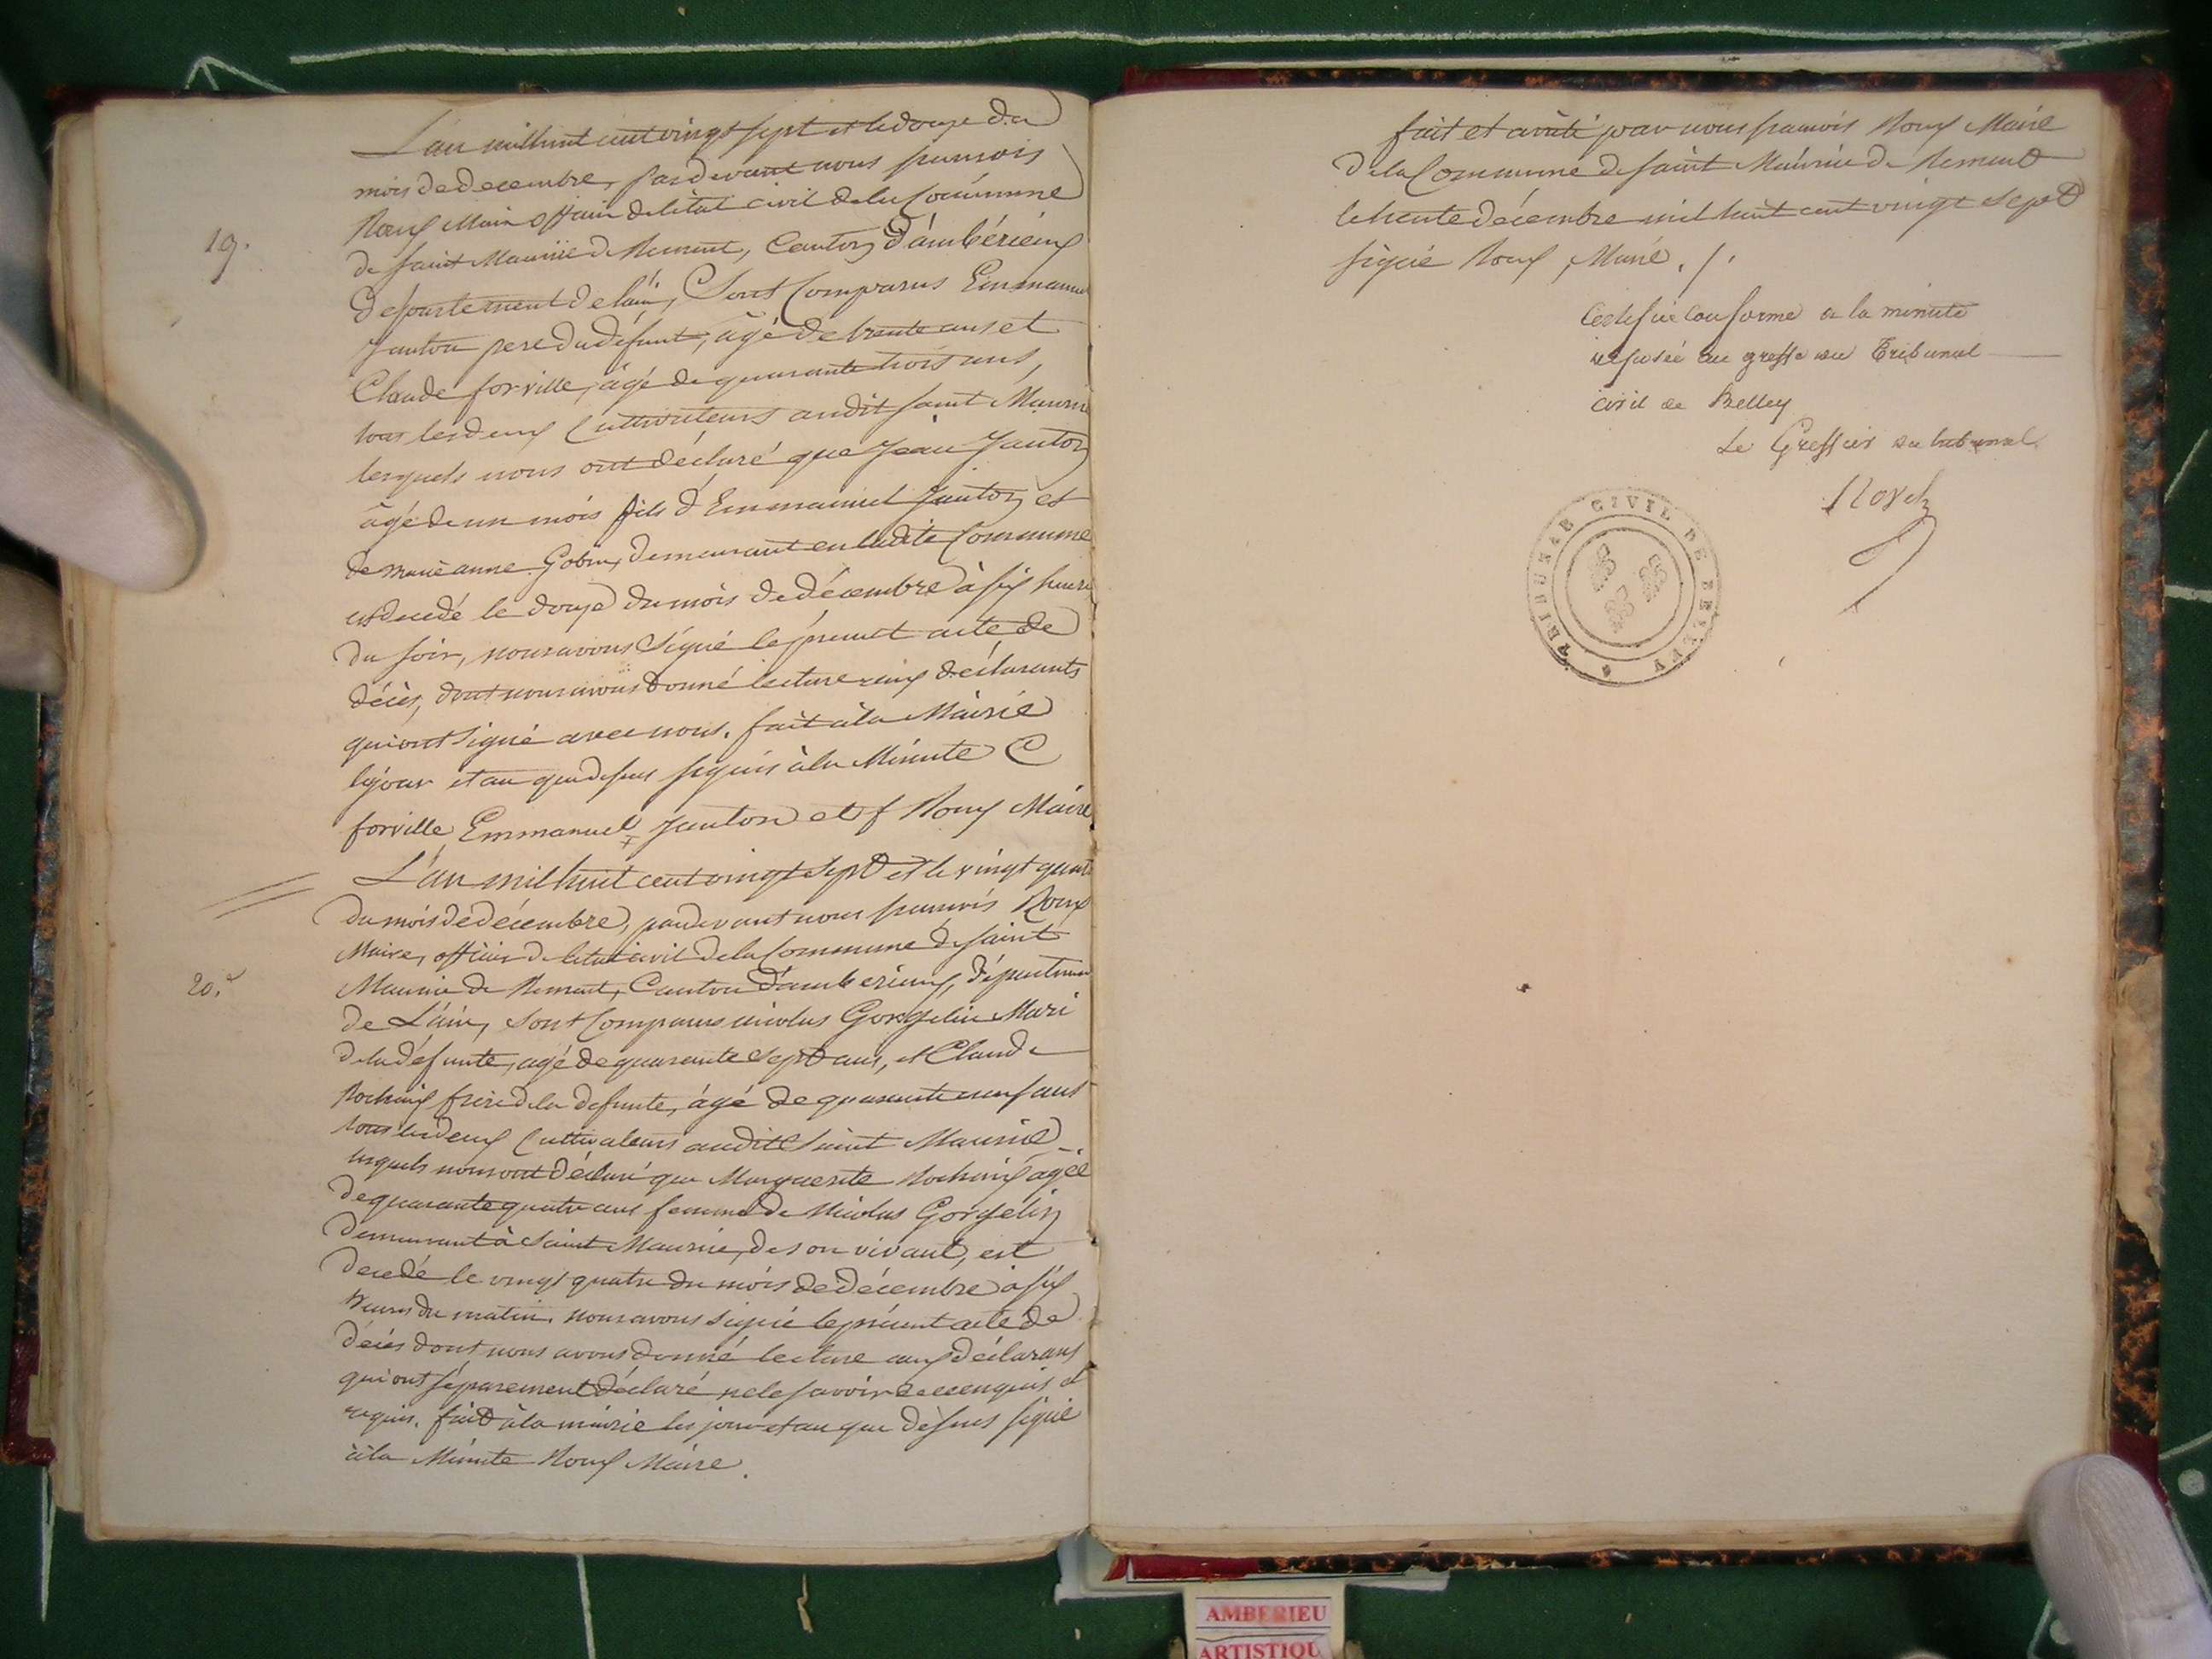 19.
L'an mil huit cent vingt sept et le douze du
mois de decembre, pardevant nous francois
Roux Maire officier de létat civil de la Commune
de saint Maurice de Rement, Canton d'ambérieux
departement de lain, Sont Comparus Emmanuel
Janton pere du défunt, âgé de trente ans et
Claude forville, âgé de quarante trois ans,
tous les deux Cultivateurs audit saint Maurice
lesquels nous ont déclaré que Jean Janton
âgé de un mois fils d'Emmanuel Janton et
de marie anne Gobin, demeurant en ladite Commune
est decedé le douze du mois de décembre à six heures
du soir, nous avons Signé le présent acte de
décès, dont nous avons donné lecture aux déclarants
qui ont Signé avec nous. fait à la Mairie
les jour et an que dessus signés à la Minute C
forville Emmanuel Janton et f Roux Maire
20.e
L'an mil huit cent vingt sept et le vingt quatre
du mois de décembre, pardevant nous francois Roux
Maire, officier de létat civil de la Commune de saint
Maurice de Rement, Canton d'amberieux, département
de L'ain, sont Comparus nicolas Gorgelin Mari
de la défunte, agé de quarante sept ans, et Claude
Rochaix frère de la defunte, âgé de quarante neuf ans
tous les deux Cultivateurs audit Saint Maurice
lesquels nous ont déclaré que Marguerite Rochaix agée
de quarante quatre ans femme de Nicolas Gorgelin
demeurant à Saint Maurice, de son vivant, est
decedé le vingt quatre du mois de décembre à six
heures du matin. nous avons signé le présent acte de
décès dont nous avons donné lecture aux déclarans
qui ont séparement déclaré ne le savoir de ce enquis et
requis. fait à la mairie les jour et an que dessus signé
à la Minute Roux Maire.
fait et arrêté par nous francois Roux Maire
de la Commune de saint Maurice de Rement
le trente décembre mil huit cent vingt sept
signé Roux, Maire ./.
Certifié conforme a la minute
déposée au greffe du Tribunal
civil de Belley
Le Greffier du tribunal.
TRIBUNAL CIVIL DE BELLEY
AMBERIEU
ARTISTIQU